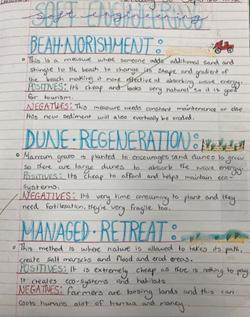 SOFT ENGINEERING
BEAH-NORISHMENT:
• This is a measure where someone adds additional sand and
shingle to the beach to change its shape and gradient of
the beach making it more effective at absorbing wave energy.
POSITIVES: Its cheap and looks very natural so it is good
for tourism.
NEGATIVES: This measure needs constant maintenance or else
this new sediment will also evertually be eroded.
DUNE-REGENERATION:
• Marram grass is planted to encourages sand dunes to grow
so there are large dunes to absorb the wave energy.
POSITIVES: Its cheap to afford and helps maintain eco-
systems.
NEGATIVES: It's very time consuming to plant and they
need fertilisation. They're very fragile too.
MANAGED-RETREAT:
• This method is where nature is allowed to takes its path,
create salt marschs and flood and erod areas.
POSITIVES: It is extremely cheap as there is nothing to pay
It creates eco-systems and habitats
NEGATIVES: Farmers are loosing lands and this can
costs humans alot of trauma and money